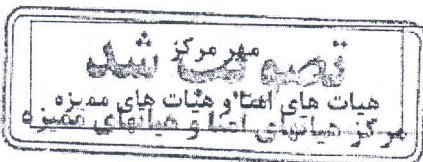 مهر مرکز
تصویب شد
هیات های امنا و هیئات های ممیزه
مرکز هیاتهای امنا و هیاتهای ممیزه